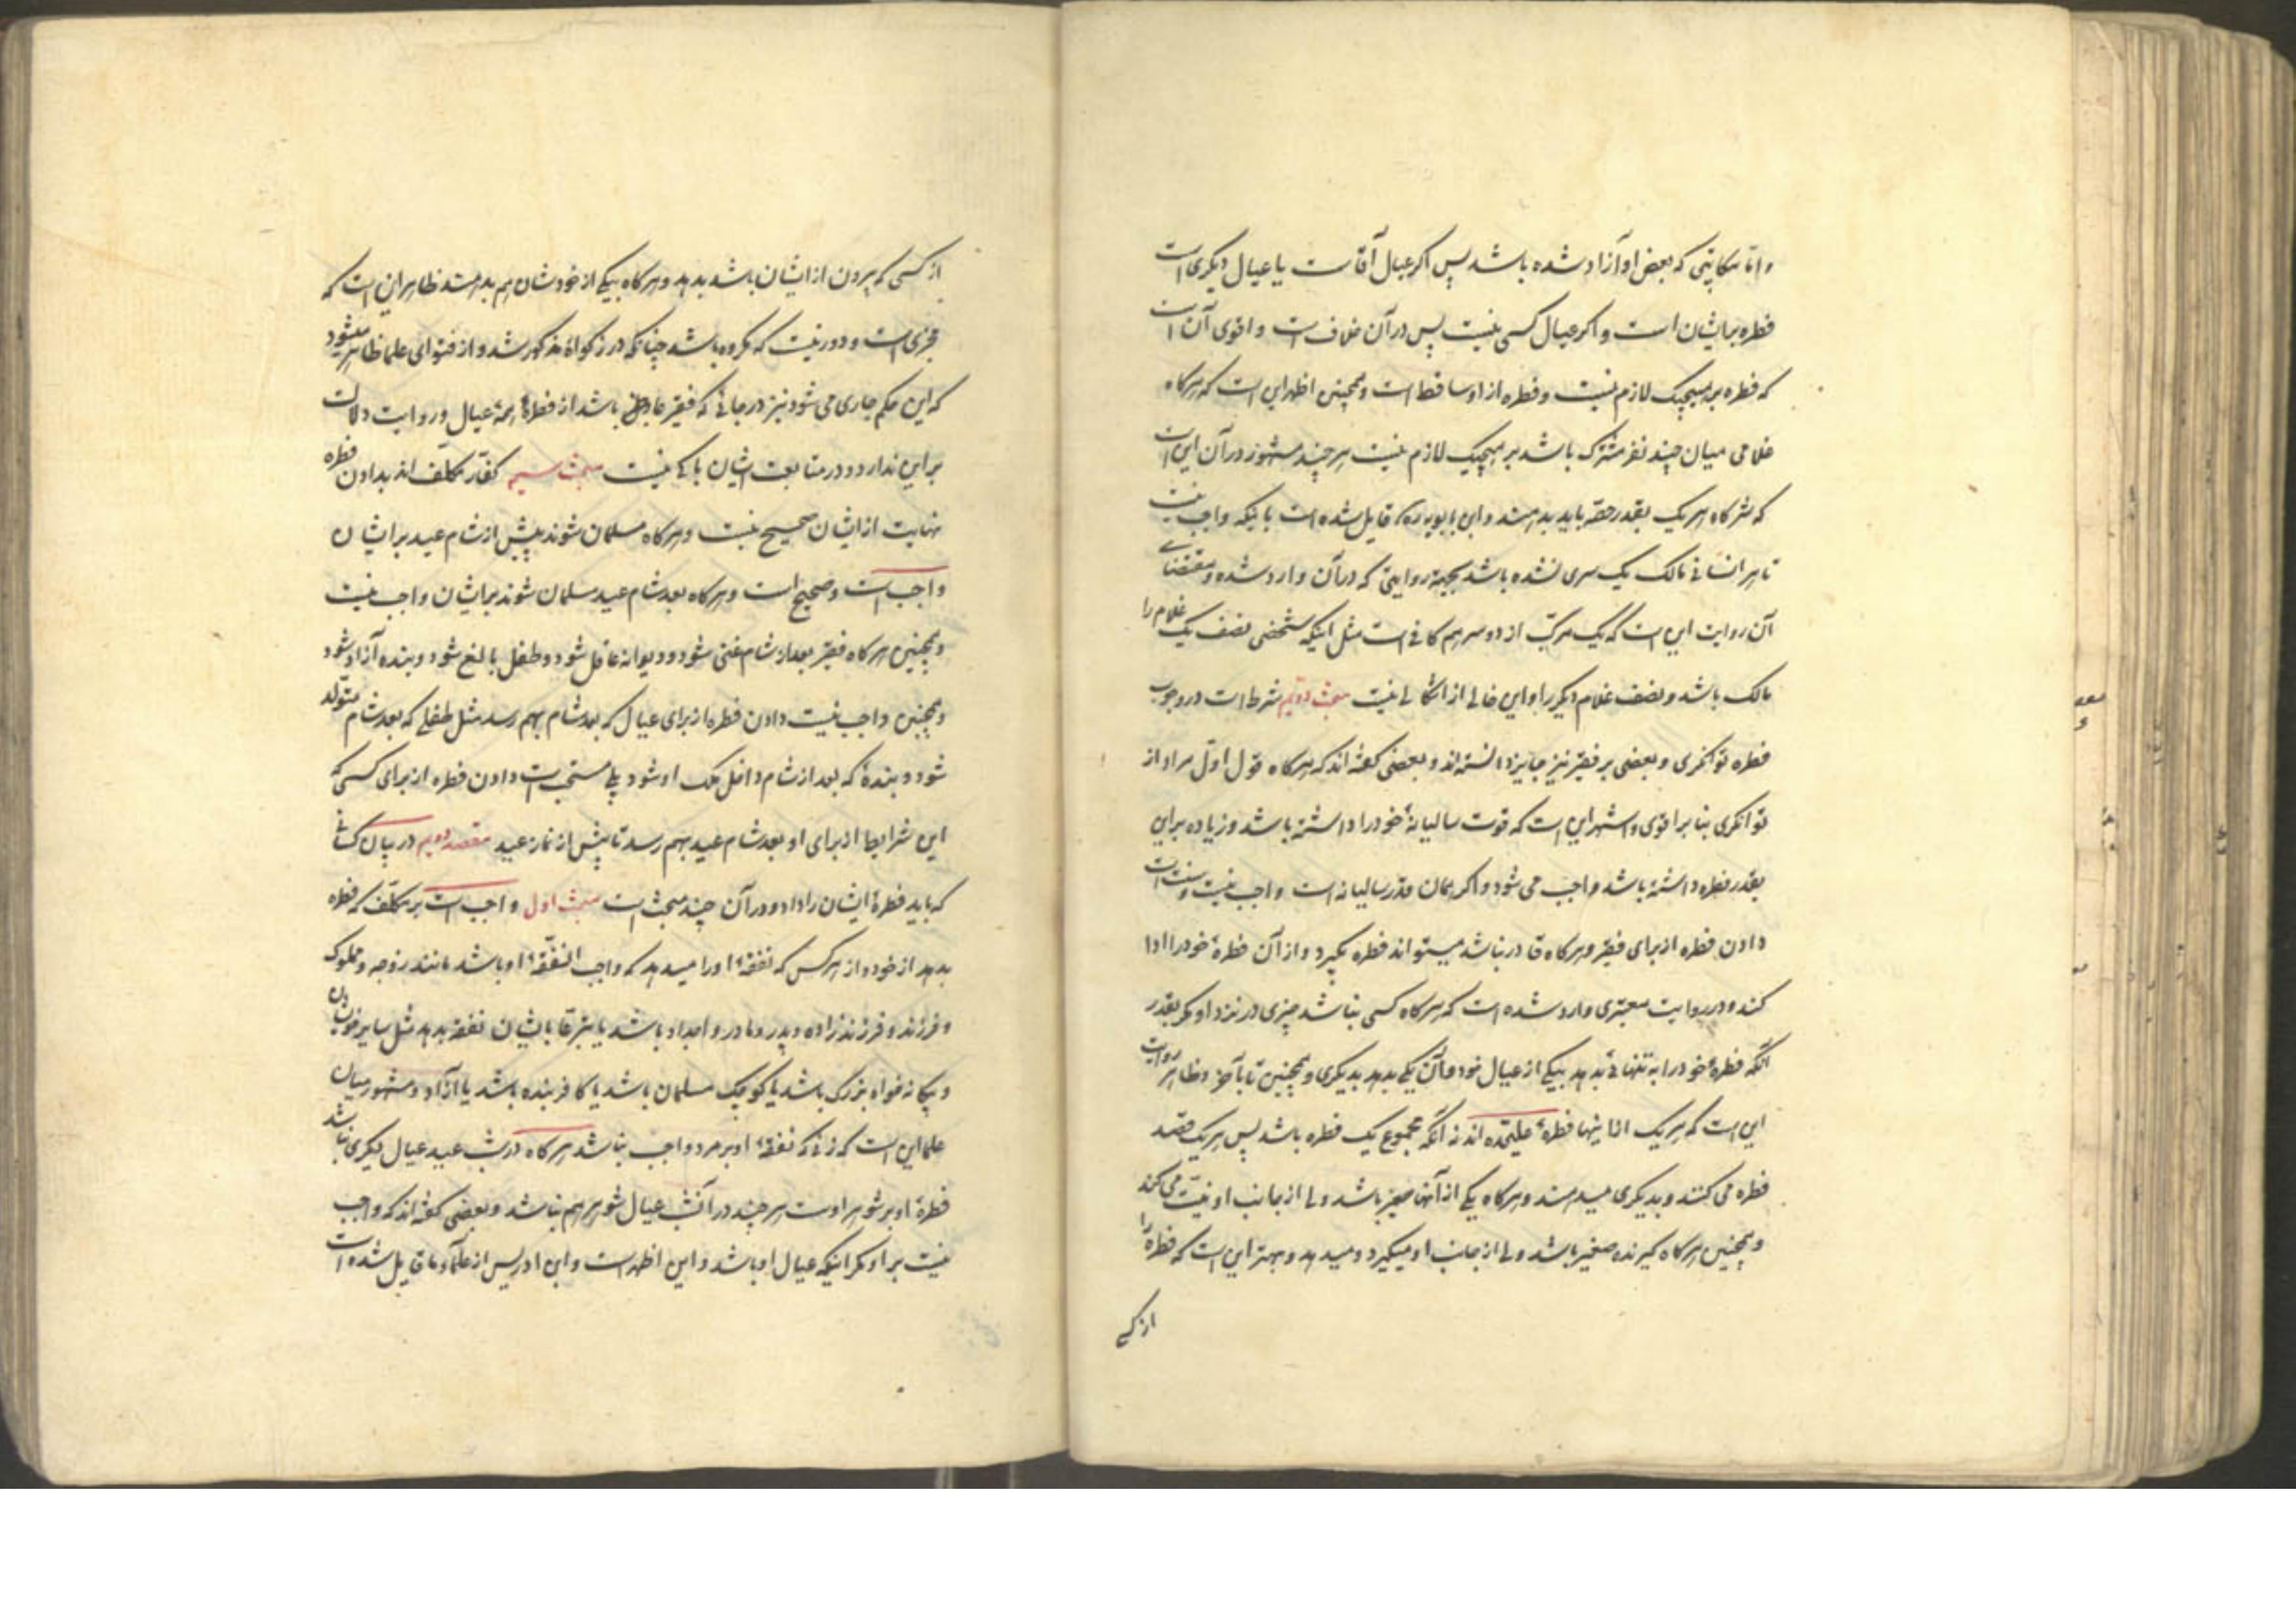 و اما مکاتبی که بعض او آزاد شده باشد پس اکر عیال آقاست یا عیال دیکری است
فطره بر ایشان است و اکر عیال کسی نیست پس در آن خلاف است و اقوی آن است
که فطره بر هیچیک لازم نیست و فطره از او ساقط است و همچنین اظهر این است که هرکاه
غلامی میان چند نفر مشترک باشد بر هیچیک لازم نیست هر چند مشهور در آن این است
که شرکاء هر یک بقدر حصّه باید بدهند و ابن بابویه ره قایل شده است باینکه واجب نیست
تا هر انسانی مالک یک سری نشده باشد بجهة روایتی که در آن وارد شده و مقتضای
آن روایت این است که یک مرکّب از دو سر هم کافی است مثل اینکه شخصی نصف یک غلام را
مالک باشد و نصف غلام دیکر را و این خالی از اشکالی نیست مبحث دویم شرط است در وجوب
فطره توانکری و بعضی بر فقیر نیز جایز دانسته اند و بعضی کفته اند که هرکاه قول اوّل مراد از
توانکری بنا بر اقوی و اشهر این است که قوت سالیانهٔ خود را داشته باشد و زیاده بر این
بقدر فطره داشته باشد واجب می شود و اکر همان قدر سالیانه است واجب نیست و سنّت است
دادن فطره از برای فقیر و هرکاه قادر نباشد میتواند فطره بکیرد و از آن فطرهٔ خود را ادا
کند و در روایت معتبری وارد شده است که هرکاه کسی نباشد چیزی در نزد او مکر بقدر
آنکه فطرهٔ خود را به تنهائی بدهد بیکی از عیال خود و آن یکی بدهد بدیکری و همچنین تا بآخر و ظاهر روایت
این است که هر یک از اینها فطرهٔ علیحده اند نه آنکه مجموع یک فطره باشد پس هر یک قصد
فطره می کنند و بدیکری میدهند و هرکاه یکی از آنها صغیر باشد ولی از جانب او نیّت می کند
و همچنین هرکاه کیرنده صغیر باشد ولی از جانب او میکیرد و میدهد و بهتر این است که فطره را
از کسی
از کسی که بیرون از ایشان باشد بدهد و هرکاه بیکی از خودشان هم بدهند ظاهر این است که
مجزی است و دور نیست که مکروه باشد چنانکه در زکواة مذکور شد و از فتوای علما ظاهر میشود
که این حکم جاری می شود نیز در جائی که فقیر عاجز باشد از فطرهٔ همهٔ عیال و روایت دلالت
بر این ندارد و در متابعت ایشان باکی نیست مبحث سیم کفّار مکلّف اند بدادن فطره
نهایت از ایشان صحیح نیست و هرکاه مسلمان شوند پیش از شام عید بر ایشان
واجب است و صحیح است و هرکاه بعد شام عید مسلمان شوند بر ایشان واجب نیست
و همچنین هرکاه فقیر بعد از شام غنی شود و دیوانه عاقل شود و طفل بالغ شود و بنده آزاد شود
و همچنین واجب نیست دادن فطره از برای عیال که بعد شام بهم رسد مثل طفلی که بعد شام متولّد
شود و بندهٔ که بعد از شام داخل ملک او شود بلی مستحب است دادن فطره از برای کسی که
این شرایط از برای او بعد شام عید بهم رسد تا پیش از نماز عید مقصد دویم در بیان کسانی
که باید فطرهٔ ایشان را داد و در آن چند مبحث است مبحث اول واجب است بر مکلّف که فطره
بدهد از خود و از هر کس که نفقهٔ او را میدهد که واجب النفقهٔ او باشد مانند زوجه و مملوک
و فرزند و فرزند زاده و پدر و مادر و اجداد باشد یا تبرّعا بایشان نفقه بدهد مثل سایر خویشان
و بیکانه خواه بزرک باشد یا کوچک مسلمان باشد یا کافر بنده باشد یا آزاد و مشهور میان
علما این است که زنی که نفقهٔ او بر مرد واجب نباشد هرکاه در شب عید عیال دیکری نباشد
فطرهٔ او بر شوهر اوست هر چند در آنشب عیال شوهر هم نباشد و بعضی کفته اند که واجب
نیست بر او مکر اینکه عیال او باشد و این اظهر است و ابن ادریس از علماء ما قایل شده است